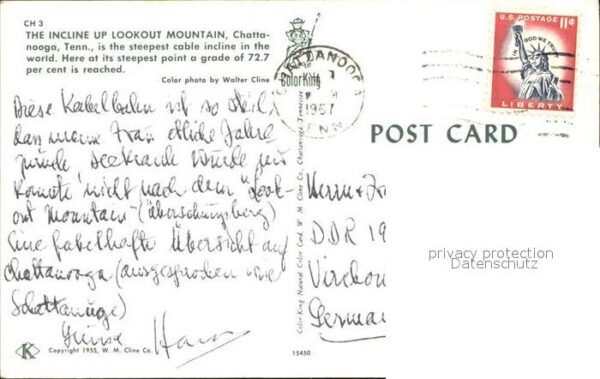 CH 3
THE INCLINE UP LOOKOUT MOUNTAIN, Chatta-
nooga, Tenn., is the steepest cable incline in the
world. Here at its steepest point a grade of 72.7
per cent is reached.
Color photo by Walter Cline
ColorKing
CHATTANOOGA
1957
TENN
U.S. POSTAGE 11¢
IN GOD WE TRUST
LIBERTY
POST CARD
Diese Kabelbahn ist so steil,
dass meine Frau etliche Jahre
zurück seekrank wurde. Wir
konnte nicht nach dem "Look-
out Mountain" (Überschauungsberg)
Eine fabelhafte Übersicht auf
Chattanooga (ausgesprochen wie
Schattanuge)
Grüsse Hans
Herrn & Fr
DDR 19
Virchow
German
privacy protection
Datenschutz
Color-King Natural Color Card, W. M. Cline Co., Chattanooga, Tennessee
K
Copyright 1955, W. M. Cline Co.
15450